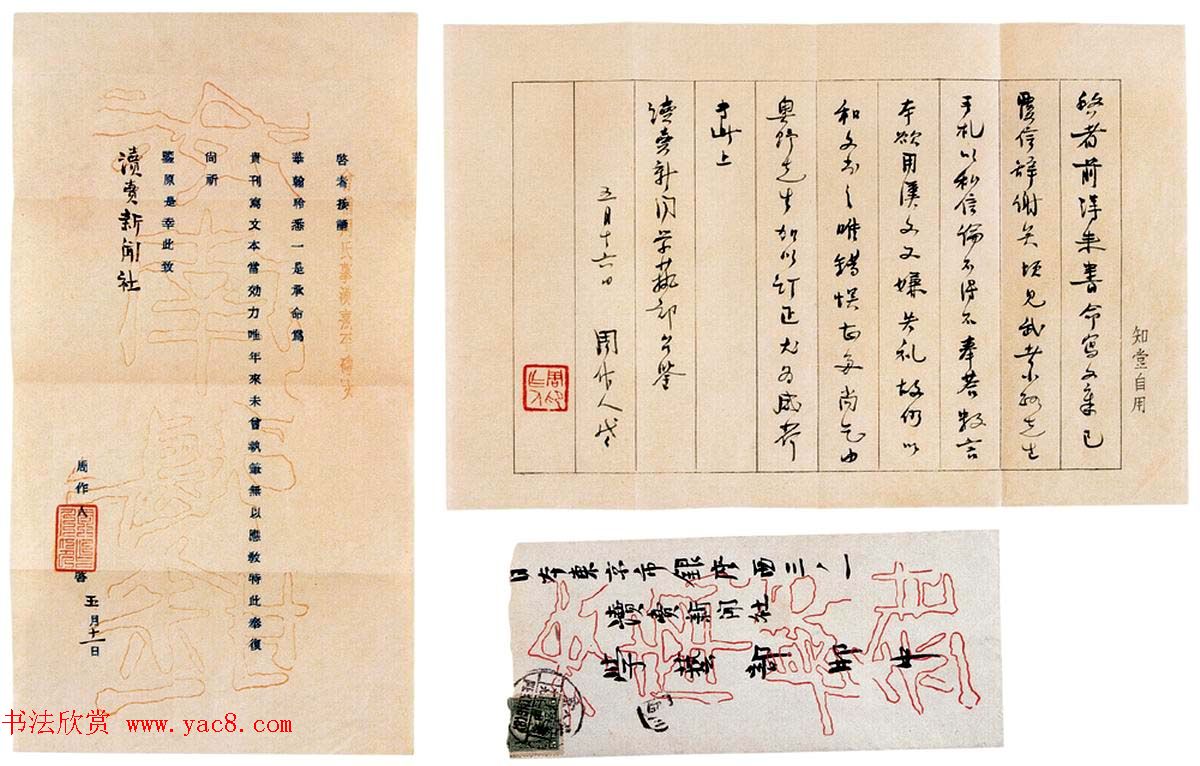 啓者接讀
華翰聆悉一是承命爲
貴刊寫文本當効力唯年來未曾執筆無以應敎特此奉復
尙祈
鑒原是幸此致
讀賣新聞社
周作人 啓 五月十一日
知堂自用
啓者前得來書命寫文章已
覆信辭謝矣頃見武者小路先生
手札以私信倫不得不奉答數言
本欲用漢文又嫌失礼故仍以
和文書之唯錯悮甚多尚乞由
奥野先生加以訂正尤为感荷
讀賣新聞学藝部台鑒
五月十六日 周作人啓
日本東京市銀座西三ノ一
讀賣新聞社
学藝部御中
书法欣赏 www.yac8.com